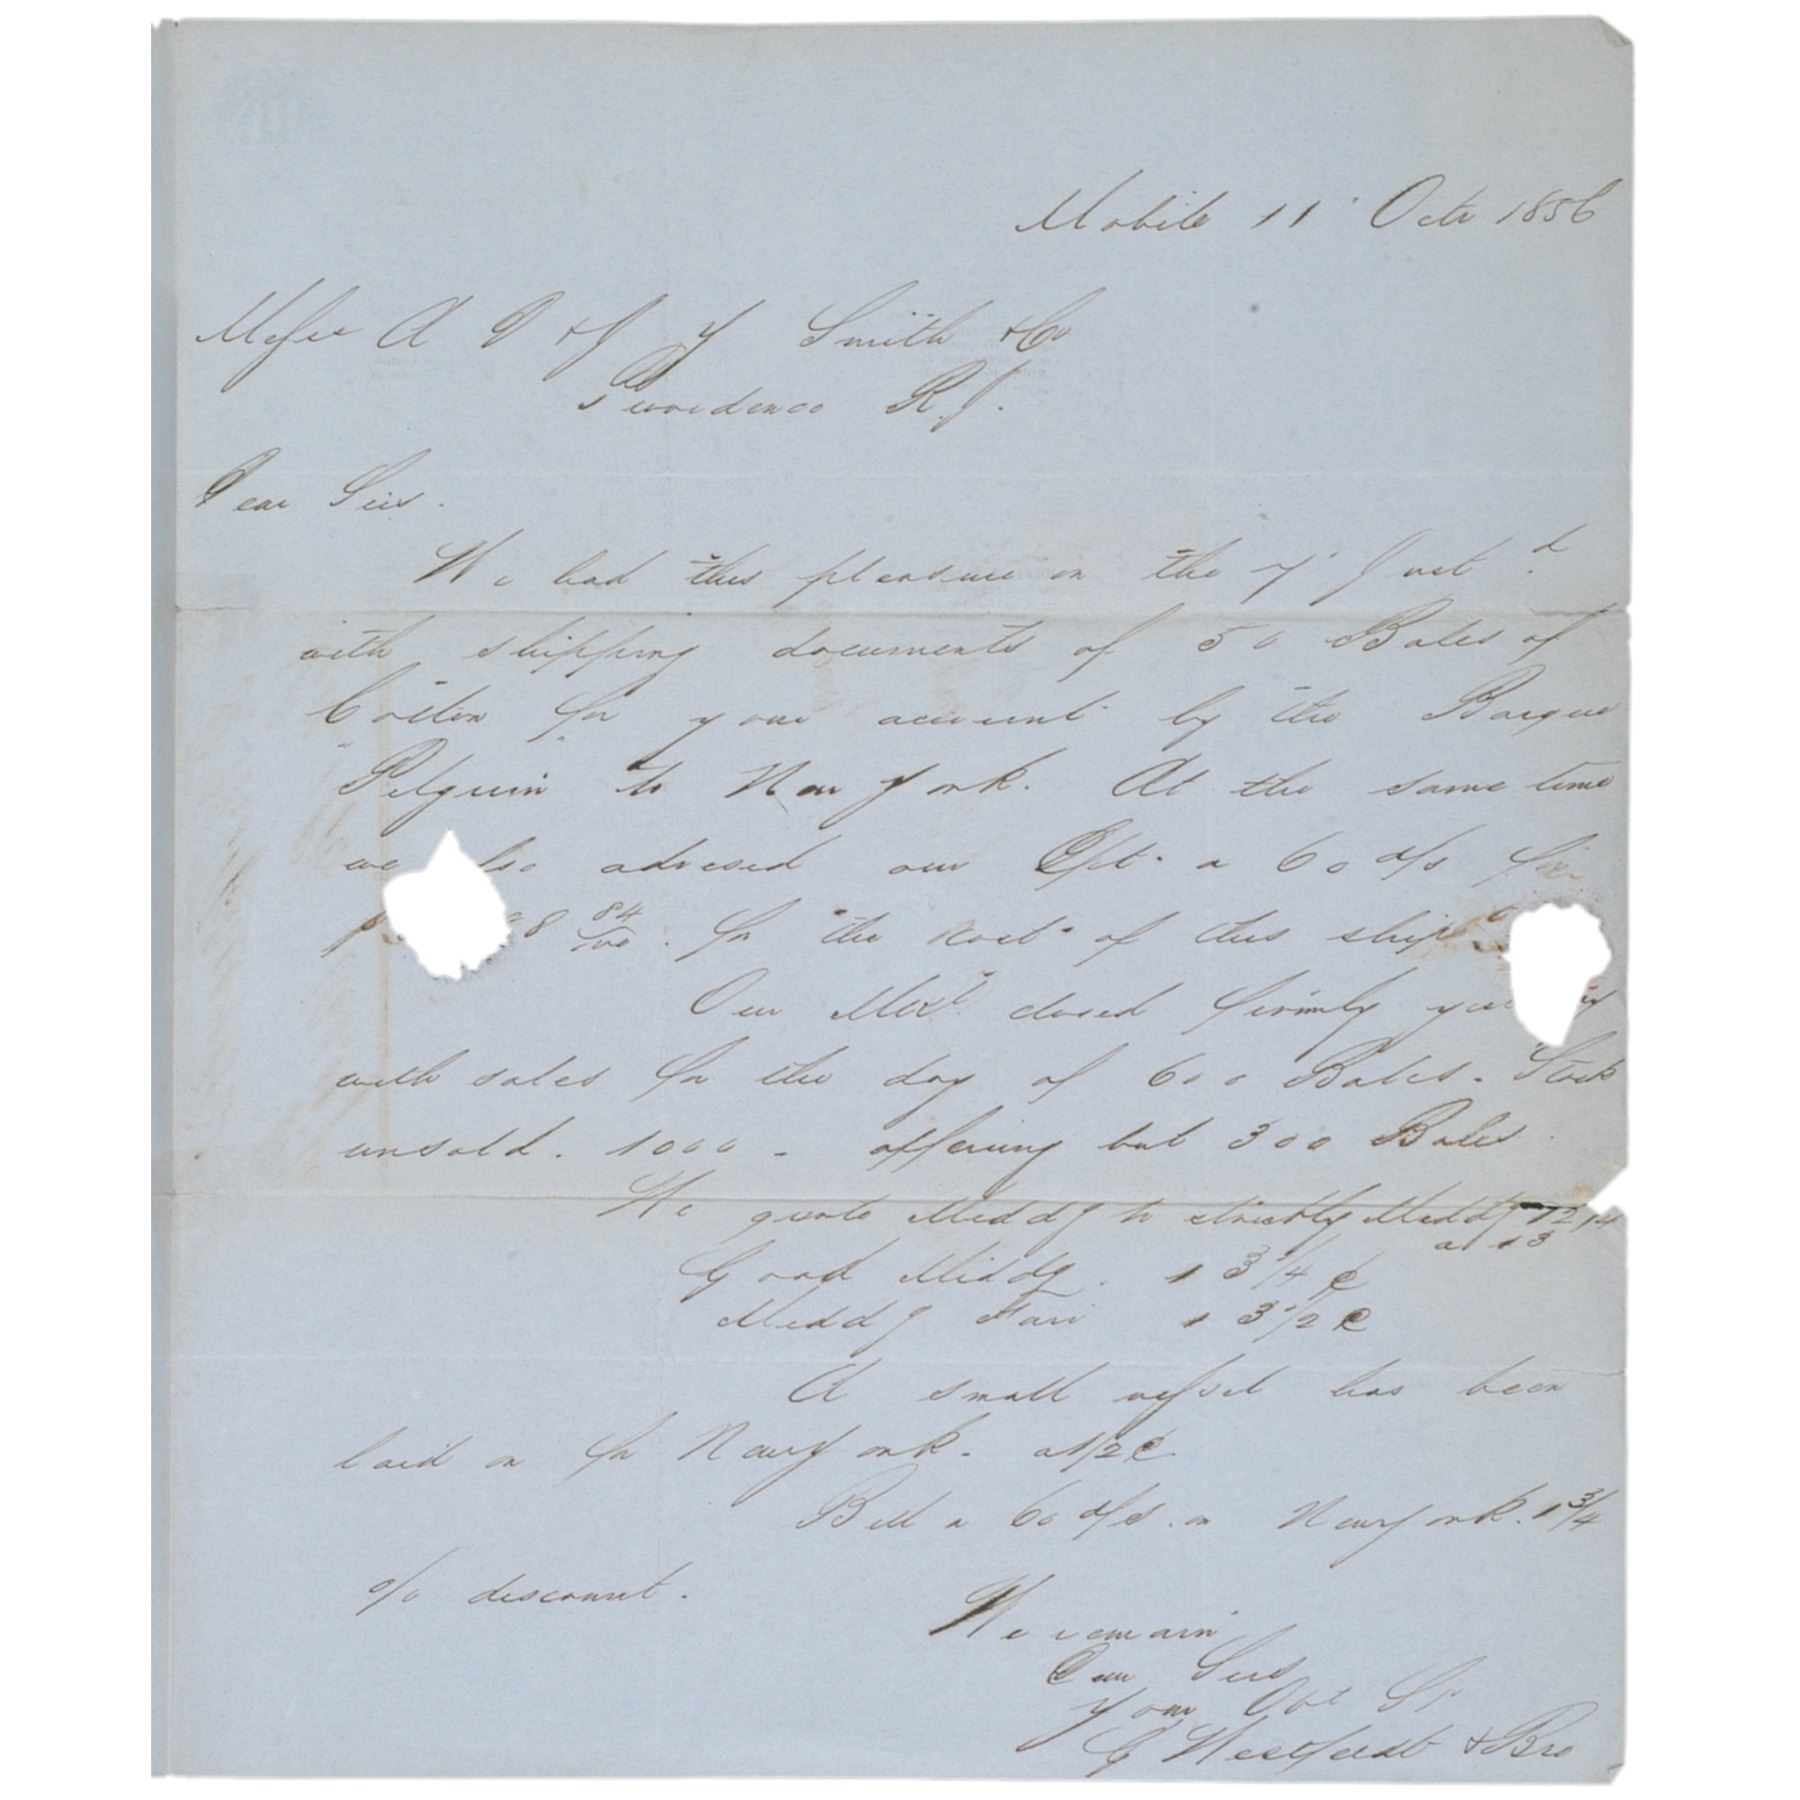 Mobile 11 Octr 1856
Messrs A D & J Y Smith & Co
Providence R.I.
Dear Sirs.
We had this pleasure on the 7' Inst
with shipping documents of 50 Bales of
Cotton for your account by the Barque
"Pilgrim" to New York. At the same time
we advised our Dft. a 60 d/s for
8 84/100. for the cost of this ship
Our Mkt closed firmly
with sales for the day of 600 Bales. Stock
unsold. 1000 - offering but 300 Bales
We quote Middg to strictly Middg 12 3/4
a 13
Good Middg. 13 1/4 c
Middg Fair 13 1/2 c
A small vessel has been
laid on for New York. a 1/2 c.
Bill a 60 d/s. on New York. 1 3/4
o/o discount.
We remain
Dear Sirs
Your Obt St
G Westfeldt & Bro